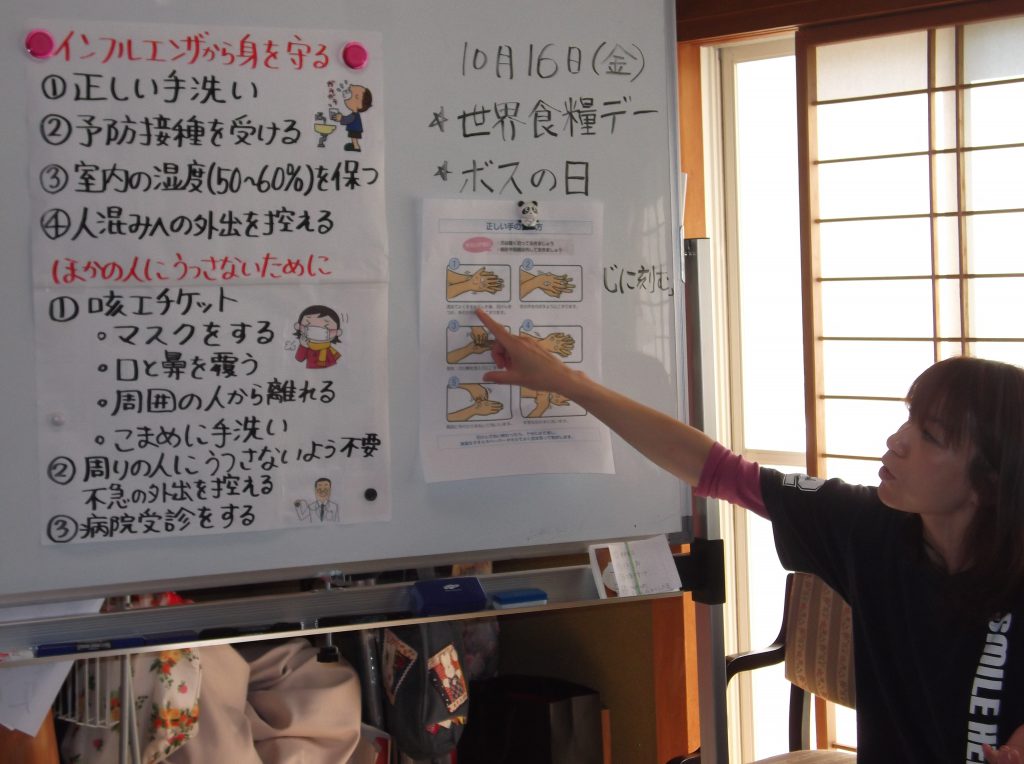 インフルエンザから身を守る
①正しい手洗い
②予防接種を受ける
③室内の湿度(50~60%)を保つ
④人混みへの外出を控える
ほかの人にうつさないために
①咳エチケット
・マスクをする
・口と鼻を覆う
・周囲の人から離れる
・こまめに手洗い
②周りの人にうつさないよう不要
不急の外出を控える
③病院受診をする
10月16日(金)
★世界食糧デー
★ボスの日
正しい手の
方
1
2
3
4
5
じに刻む」
SMILE HE